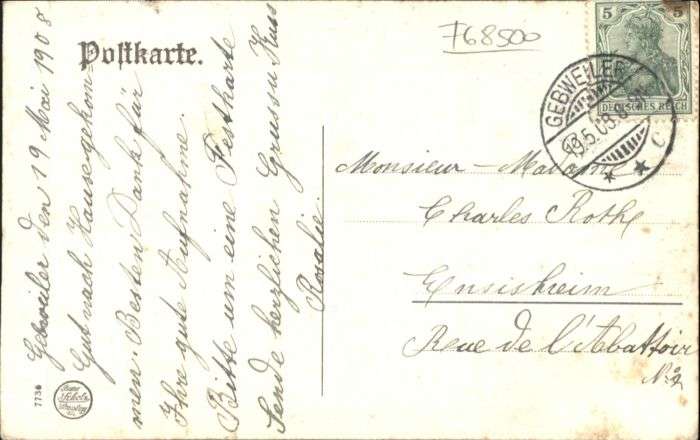 Postkarte.
Gebweiler den 19 Mai 1908
Gut nach Hause gekom-
men. Besten Dank für
Ihre gute Aufnahme.
Bitte um eine Festkarte
Sende herzlichen Gruss u Kuss
Rosalie.
7736
F68500
5 5
DEUTSCHES REICH
GEBWEILER
19.5.08.
C
* *
Monsieur - Madame
Charles Rothe
Ensisheim
Rue de l'Abattoir
No 2